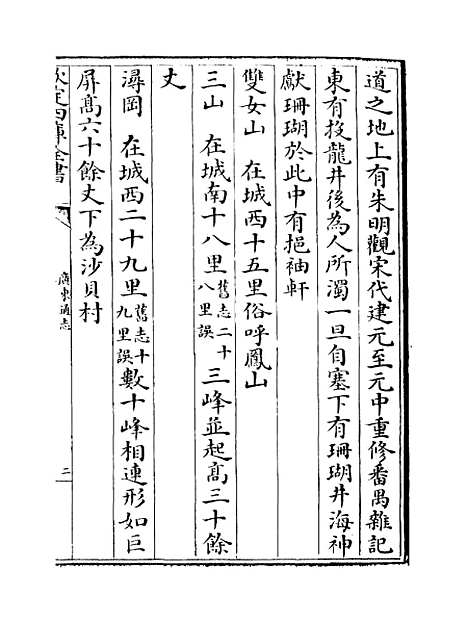 道之地上有朱明觀宋代建元至元中重修番禺雜記
東有投龍井後為人所濁一旦自塞下有珊瑚井海神
獻珊瑚於此中有挹袖軒
雙女山　在城西十五里俗呼鳳山
三山　在城南十八里舊志二十八里誤三峰並起髙三十餘
丈
潯岡　在城西二十九里舊志十九里誤數十峰相連形如巨
屏髙六十餘丈下為沙貝村
欽定四庫全書
廣東通志
二